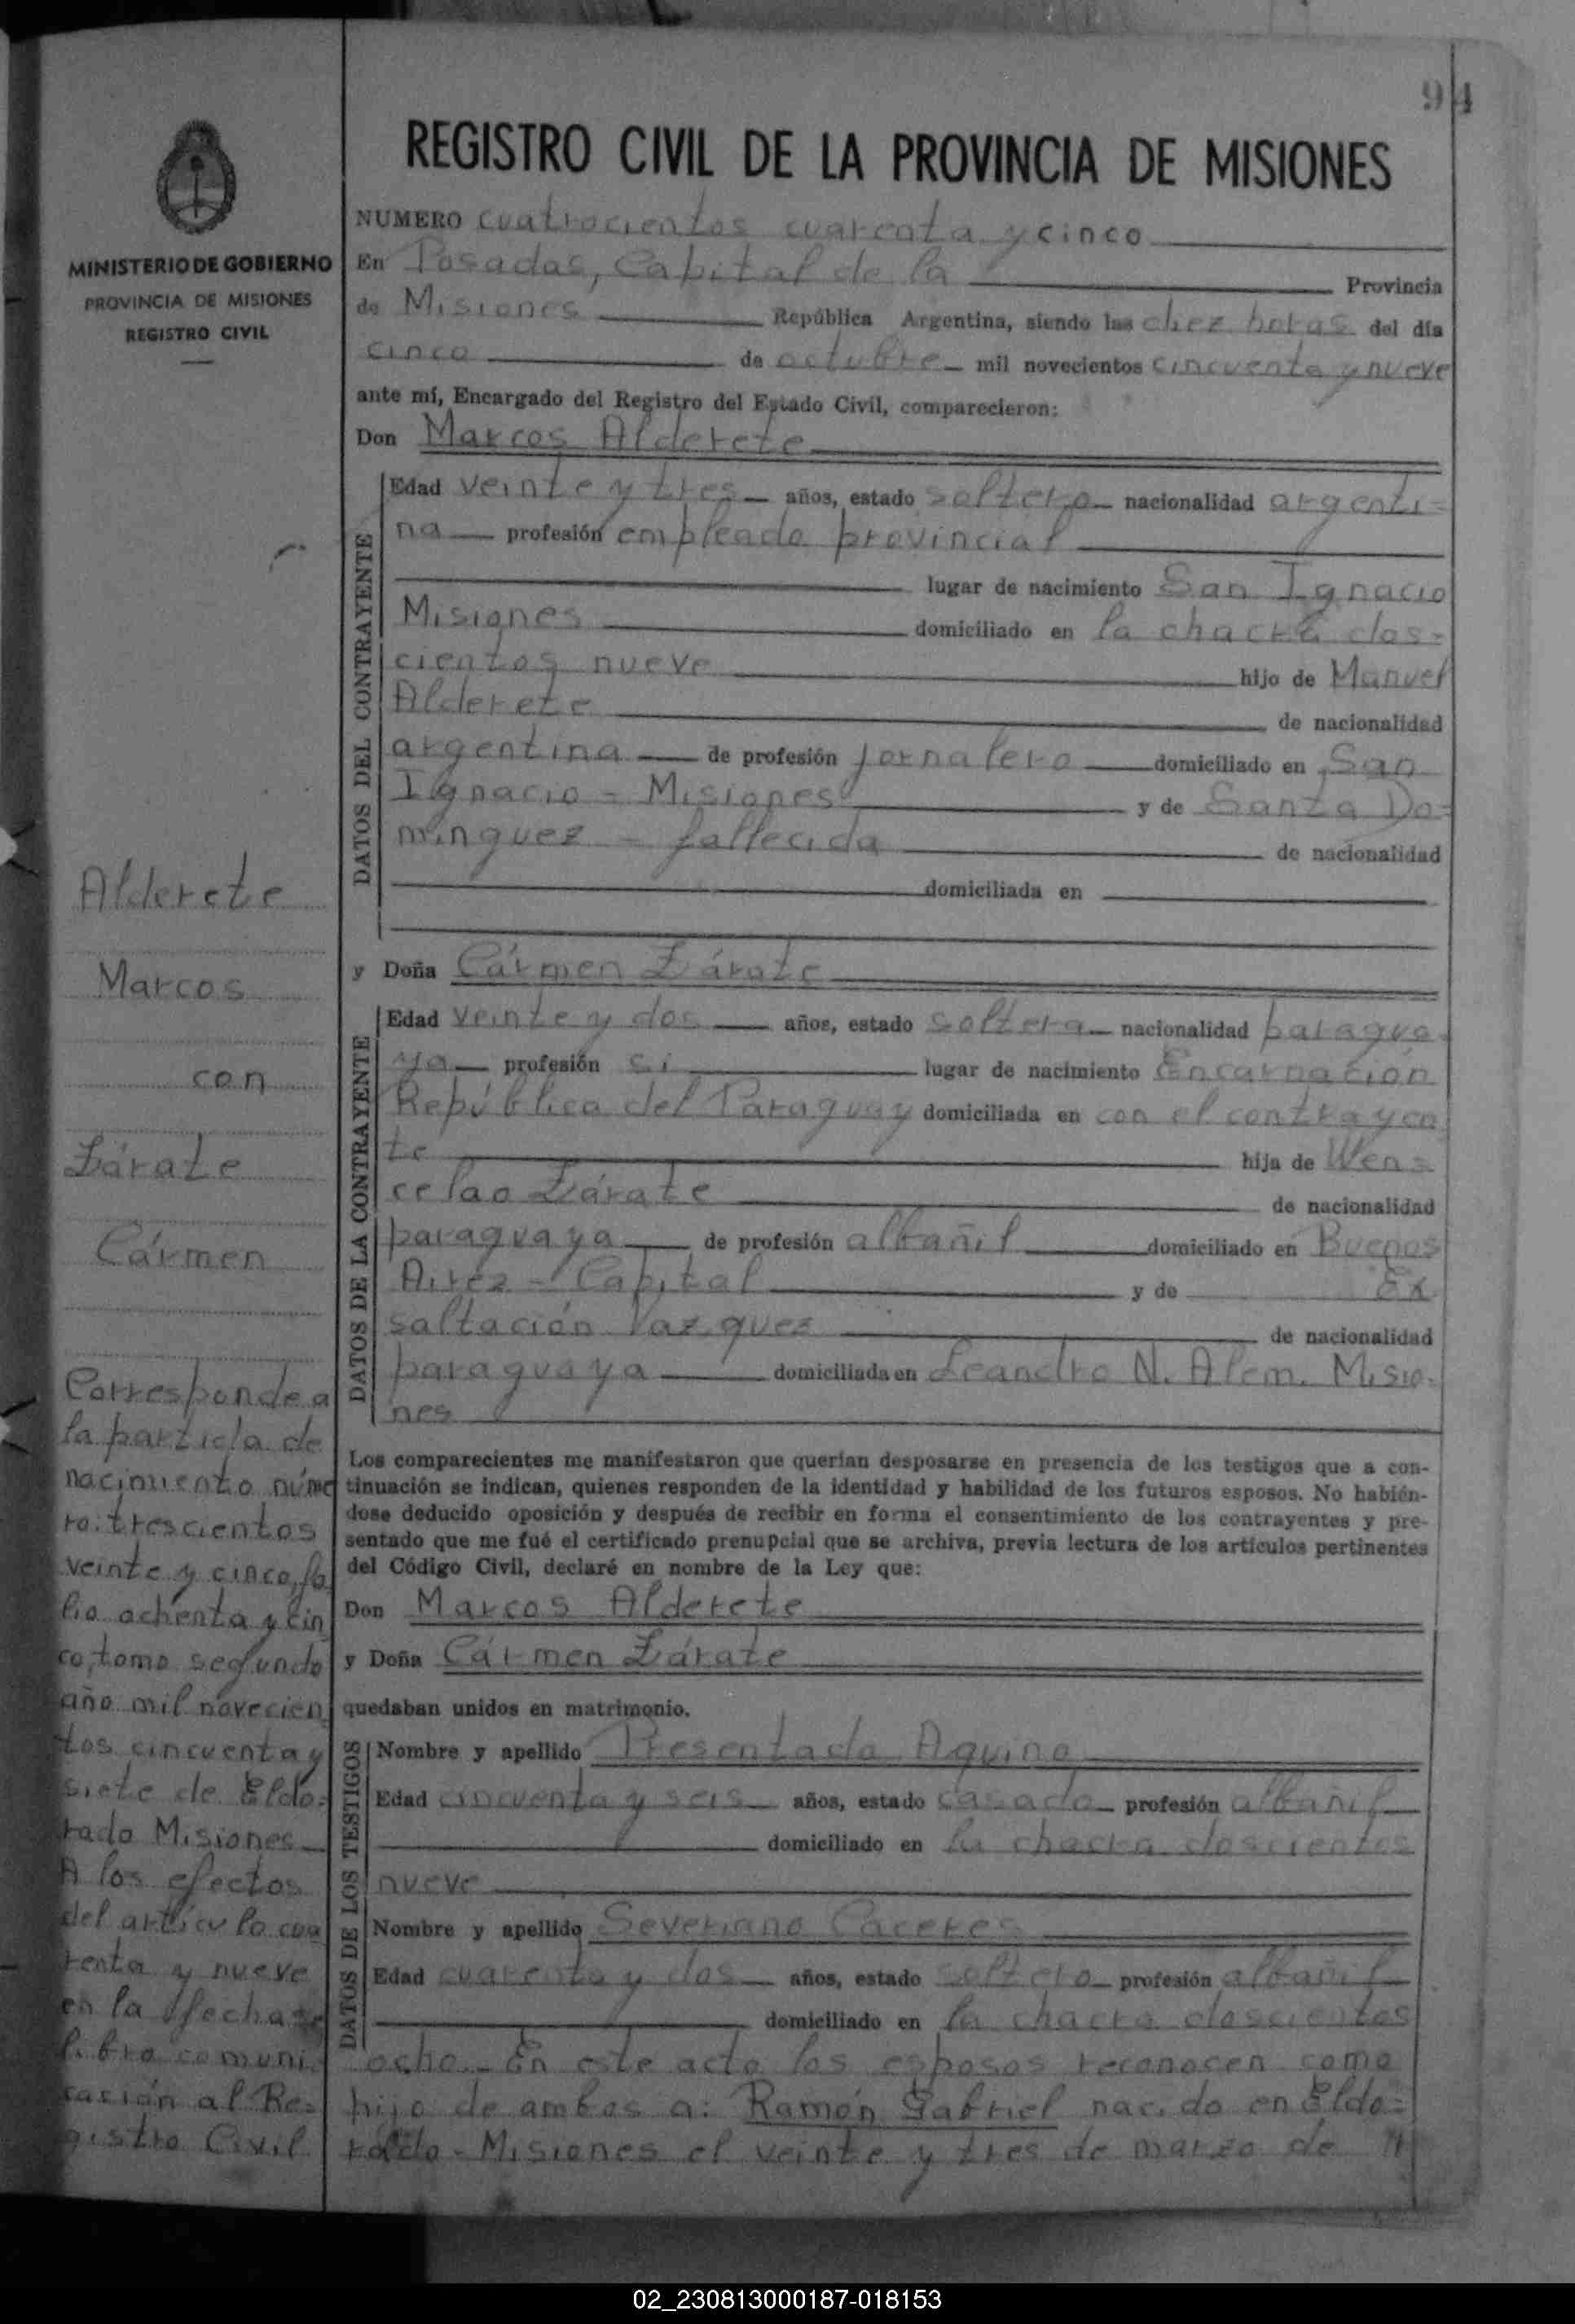 94
REGISTRO CIVIL DE LA PROVINCIA DE MISIONES
MINISTERIO DE GOBIERNO
PROVINCIA DE MISIONES
REGISTRO CIVIL
NUMERO cuatrocientos cuarenta y cinco
En Posadas, Capital de la Provincia
de Misiones República Argentina, siendo las diez horas del día
cinco de octubre mil novecientos cincuenta y nueve
ante mí, Encargado del Registro del Estado Civil, comparecieron:
Don Marcos Alderete
DATOS DEL CONTRAYENTE
Edad veinte y tres años, estado soltero nacionalidad argenti=
na profesión empleado provincial
lugar de nacimiento San Ignacio
Misiones domiciliado en la chacra dos=
cientos nueve hijo de Manuel
Alderete de nacionalidad
argentina de profesión jornalero domiciliado en San
Ignacio = Misiones y de Santa Do=
minguez = fallecida de nacionalidad
domiciliada en
y Doña Cármen Zárate
DATOS DE LA CONTRAYENTE
Edad veinte y dos años, estado soltera nacionalidad paragua=
ya profesión si lugar de nacimiento Encarnación
República del Paraguay domiciliada en con el contrayen
te hija de Wen=
celao Zárate de nacionalidad
paraguaya de profesión albañil domiciliado en Buenos
Aires - Capital y de Ex
saltación Vazquez de nacionalidad
paraguaya domiciliada en Leandro N. Alem. Misio=
nes
Los comparecientes me manifestaron que querían desposarse en presencia de los testigos que a con-
tinuación se indican, quienes responden de la identidad y habilidad de los futuros esposos. No habién-
dose deducido oposición y después de recibir en forma el consentimiento de los contrayentes y pre-
sentado que me fué el certificado prenupcial que se archiva, previa lectura de los artículos pertinentes
del Código Civil, declaré en nombre de la Ley que:
Don Marcos Alderete
y Doña Cármen Zárate
quedaban unidos en matrimonio.
DATOS DE LOS TESTIGOS
Nombre y apellido Presentado Aquino
Edad cincuenta y seis años, estado casado profesión albañil
domiciliado en la chacra doscientos
nueve
Nombre y apellido Severiano Caceres
Edad cuarenta y dos años, estado soltero profesión albañil
domiciliado en la chacra doscientos
ocho. En este acto los esposos reconocen como
hijo de ambos a: Ramón Gabriel nacido en Eldo=
rado - Misiones el veinte y tres de marzo de
Alderete
Marcos
con
Zárate
Cármen
Corresponde a
la partida de
nacimiento núme
ro: trescientos
veinte y cinco, fo
lio ochenta y cin
co, tomo segundo
año mil novecien
tos cincuenta y
siete de Eldo=
rado Misiones
A los efectos
del artículo cua
renta y nueve
en la fecha se
libro comuni=
cación al Re=
gistro Civil
02_230813000187-018153